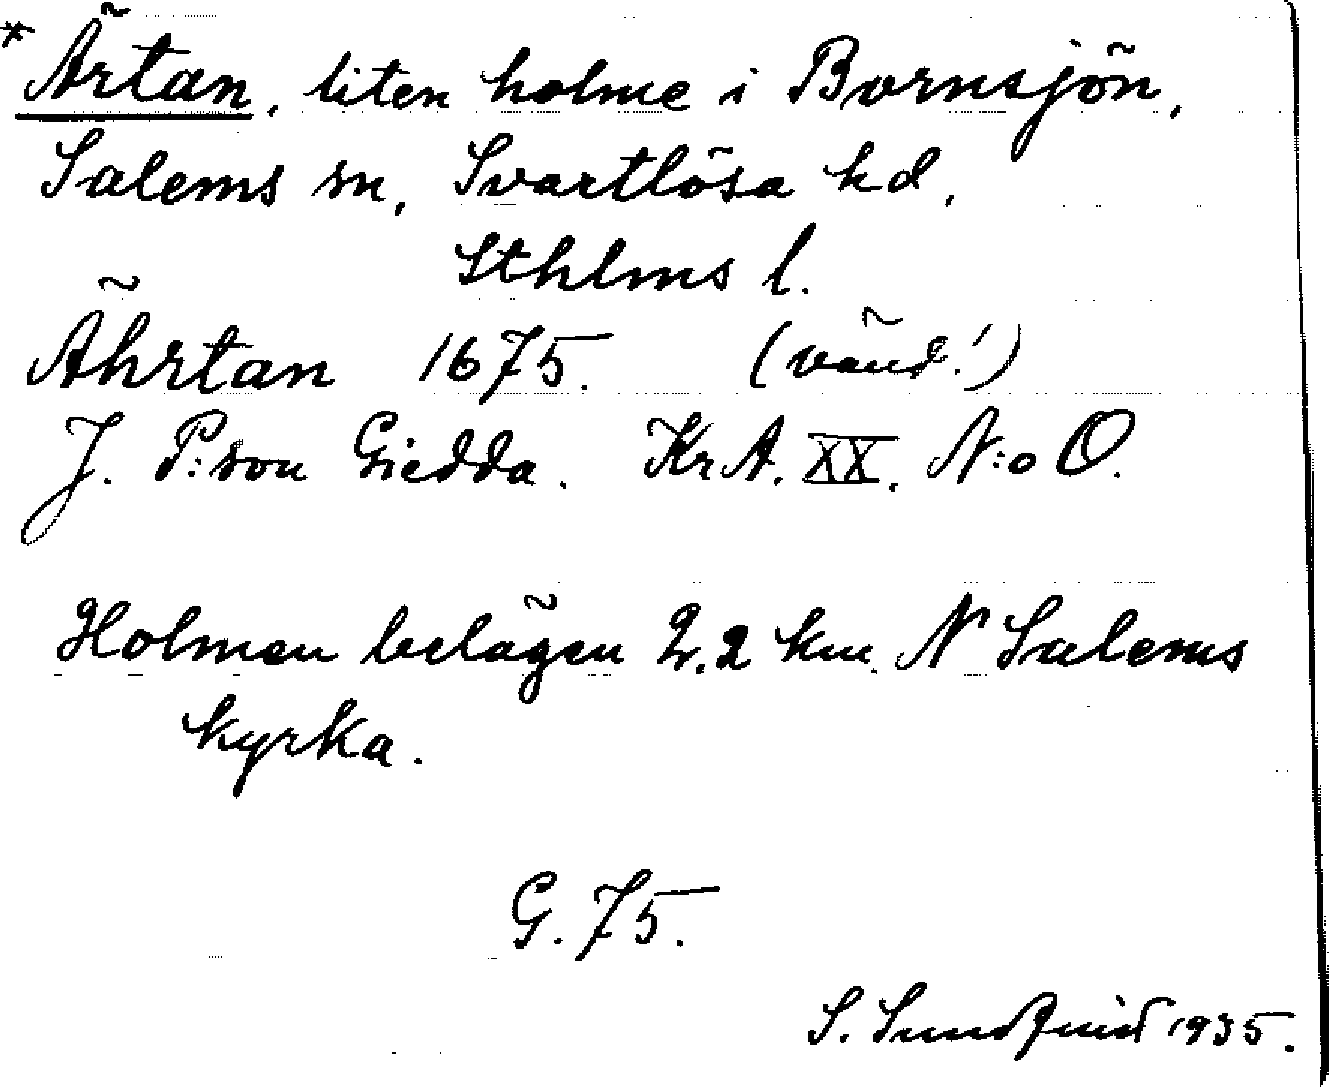 *Ärtan, liten holme i Bornsjön,
Salems sn, Svartlösa hd,
Sthlms l.
Ährtan 1675. (vänd!)
J. P:son Giedda. KrA. XX. N:o O.
Holmen belägen 2,2 km. N Salems
kyrka.
G. 75.
S. Sundquist 1935.